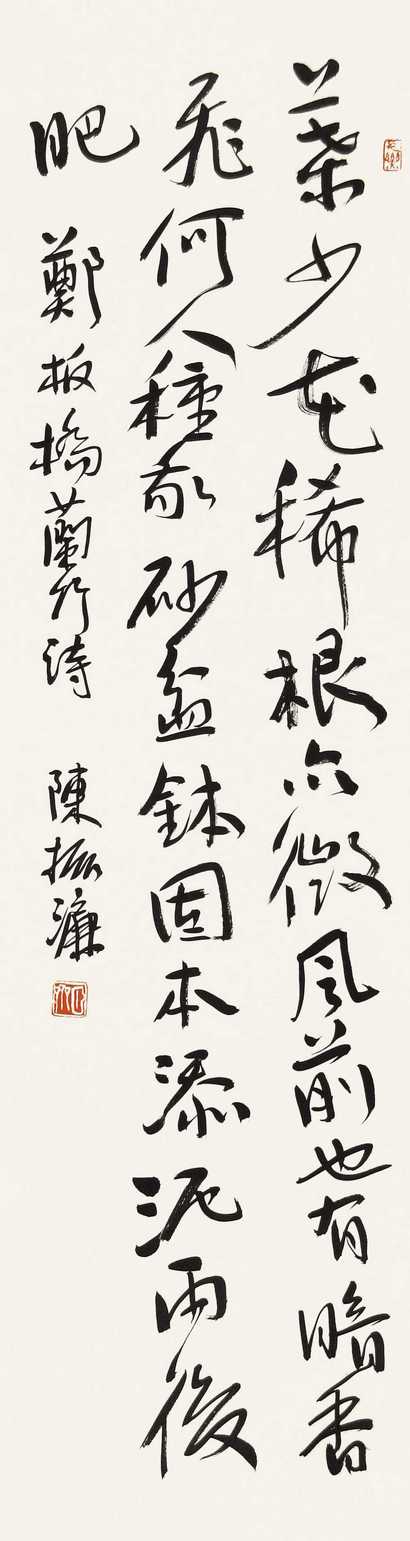 葉少花稀根亦微風前也有暗香
飛何人種向砂盆鉢固本添泥雨後
肥 鄭板橋蘭竹詩 陳振濂